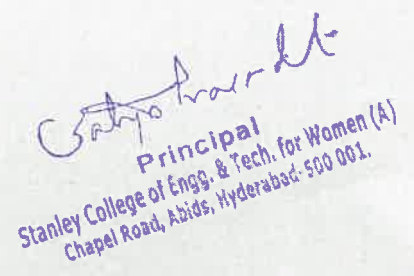 Satya Prasad
Principal
Stanley College of Engg. & Tech. for Women (A)
Chapel Road, Abids, Hyderabad-500 001.